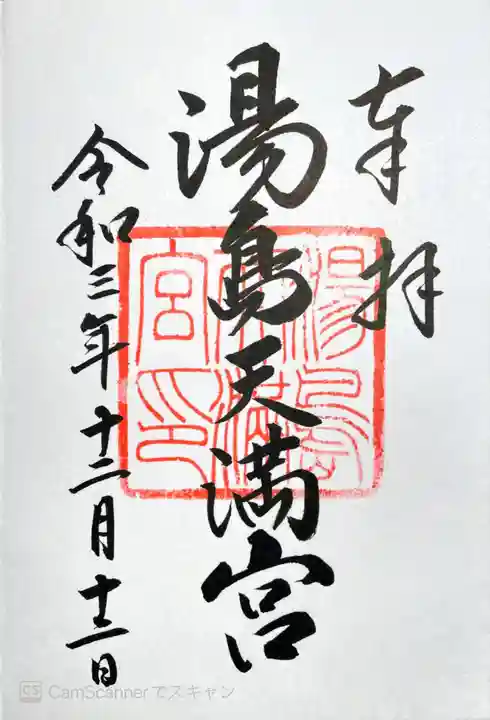 奉拝
湯島天満宮
湯島天満宮印
令和三年十二月十二日
CS CamScannerでスキャン